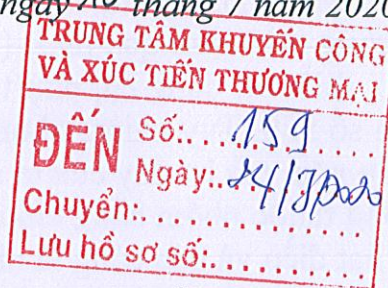 ngày tháng 7 năm 2020
TRUNG TÂM KHUYẾN CÔNG
VÀ XÚC TIẾN THƯƠNG MẠI
ĐẾN
Số:....159....
Ngày:.24/7/2020
Chuyển:..............
Lưu hồ sơ số:...........